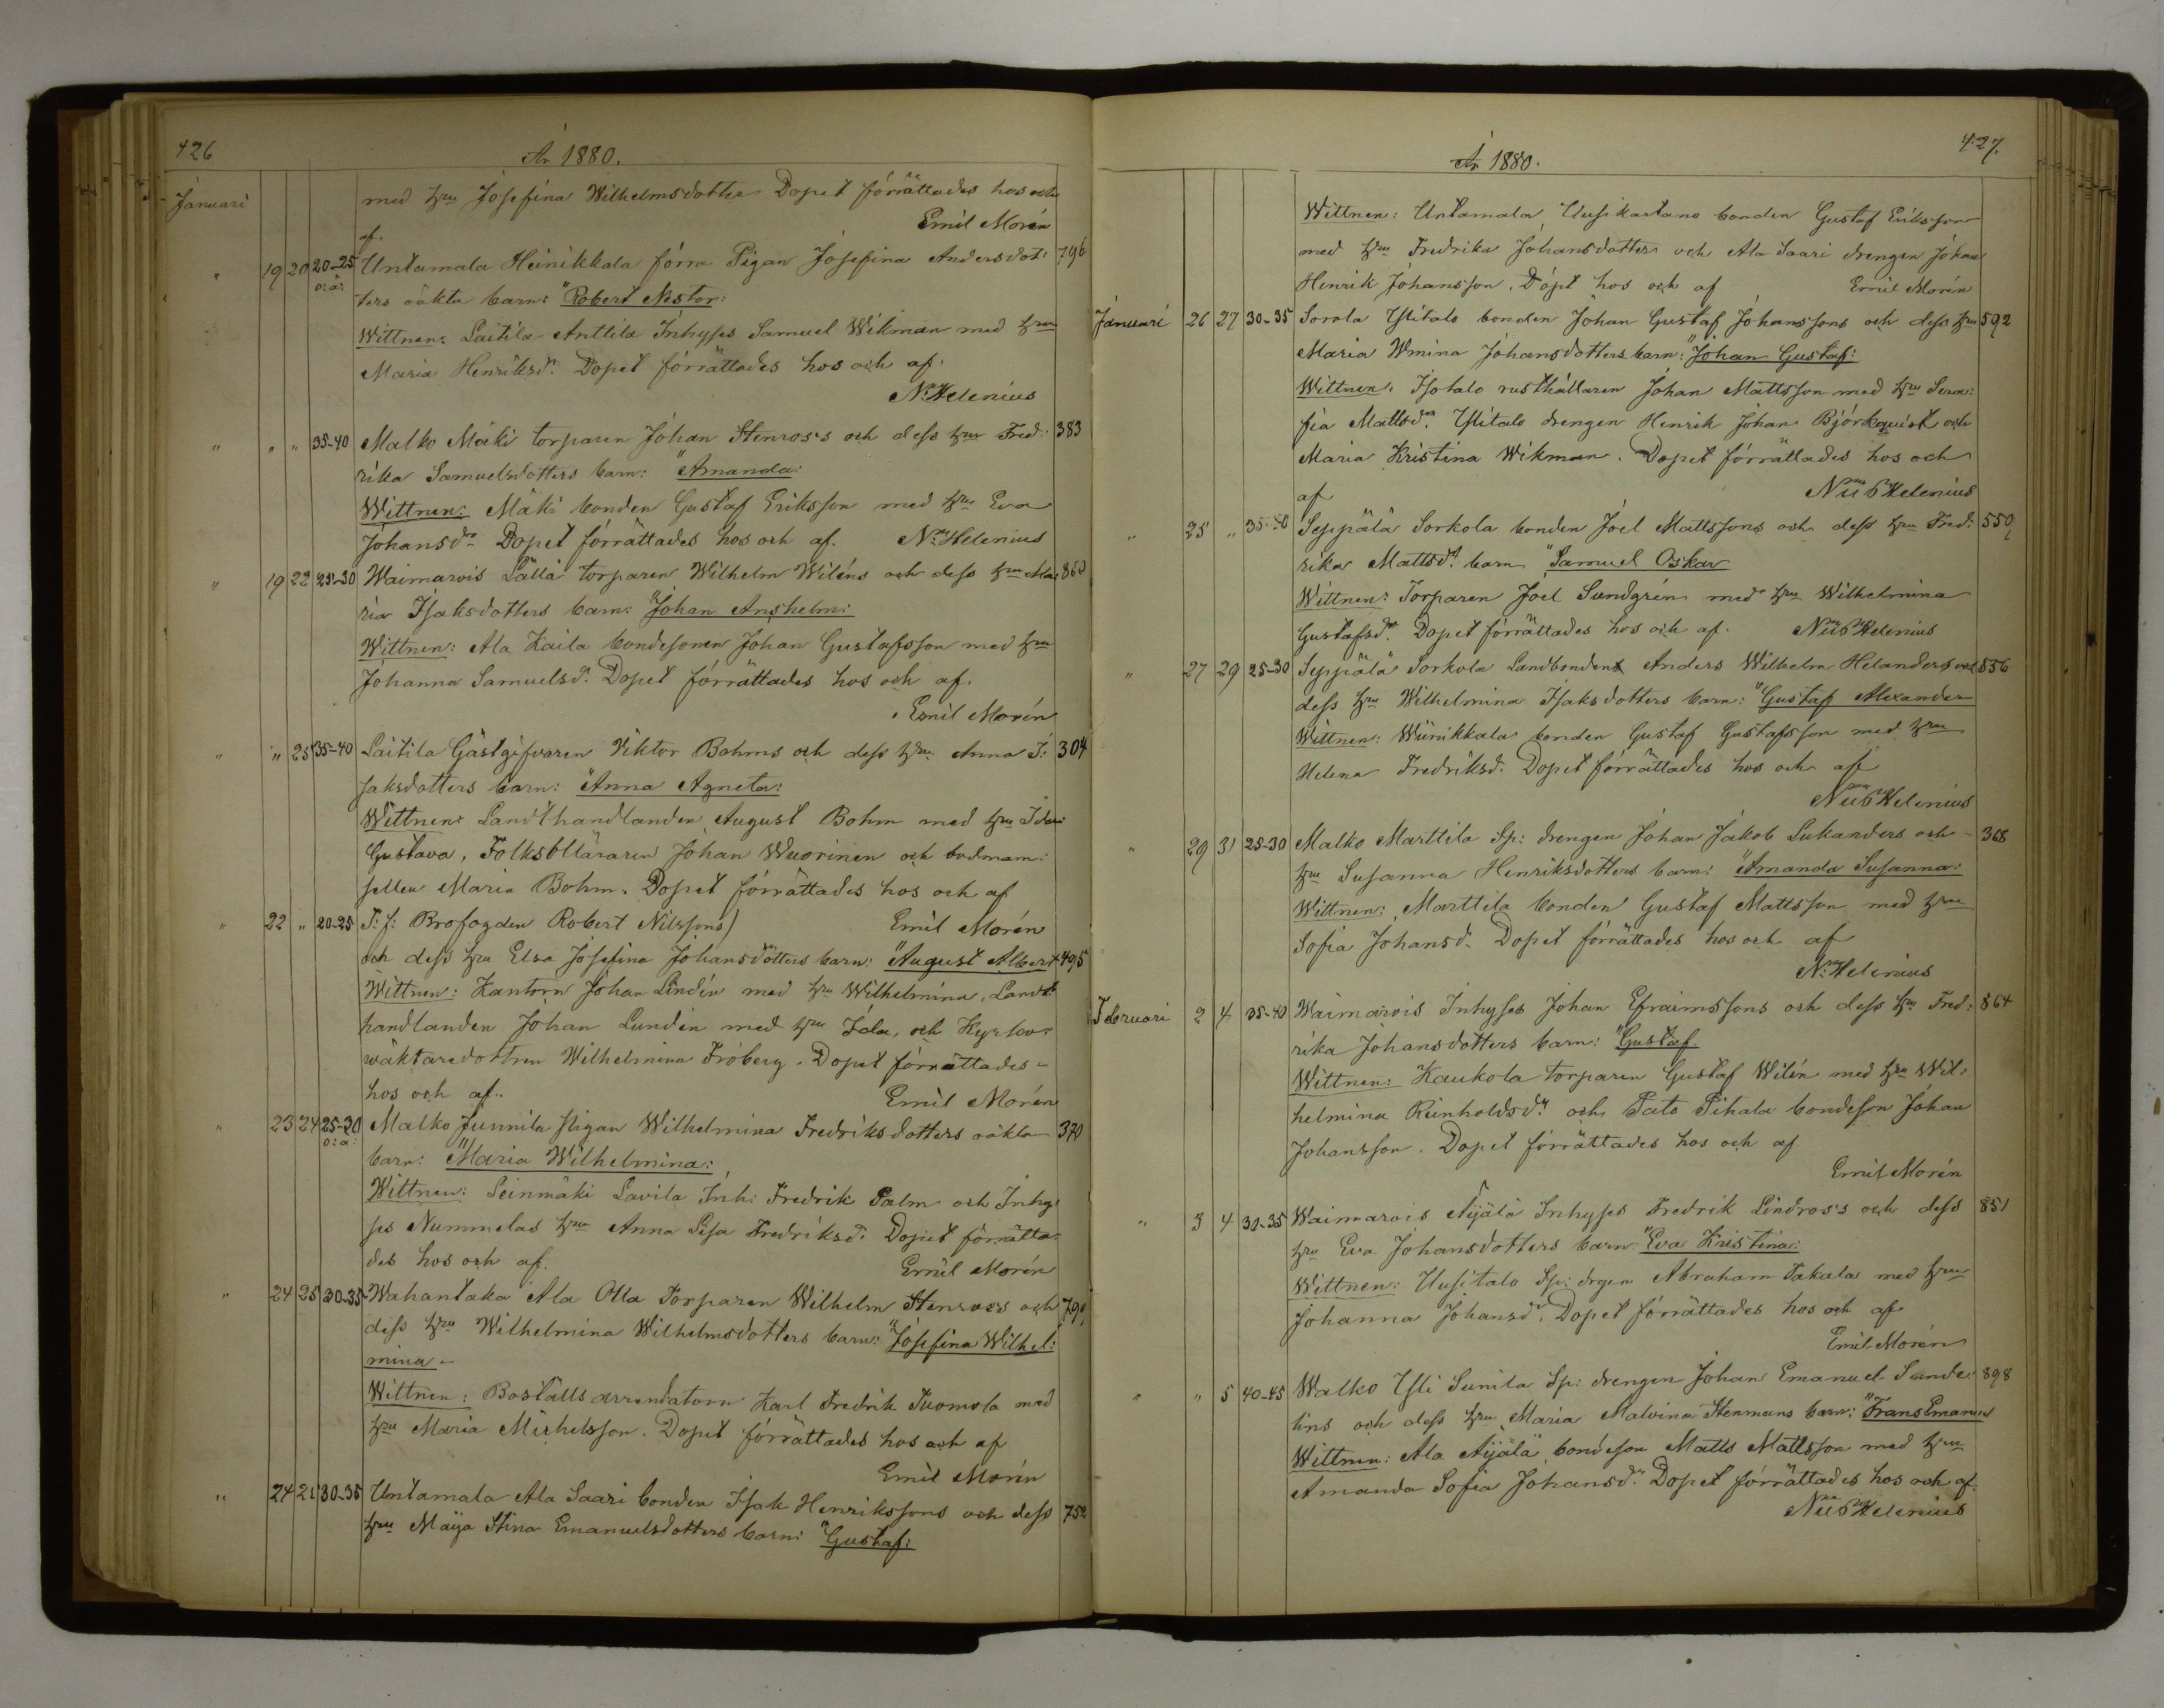 426
År 1880.
Januari
med hru Josefina Wilhelmsdotter Dopet förrättades hos och
af.
Emil Morén
" 19 20 20-25 o: ä: Untamala Heinikkala förra Pigan Josefina Andersdot: 796
ters oäkta barn: "Robert Nestor:
Wittnen: Laitila Anttila Inhyses Samuel Wikman med hru
Maria Henriksdr. Dopet förrättades hos och af.
Ns Helenius
" " " 35-40 Malko Mäki torparen Johan Stenros's och dess hru Fred: 383
rika Samuelsdotters barn: "Amanda:
Wittnen: Mäki bonden Gustaf Eriksson med hru Eva
Johansdr Dopet förrättades hos och af. Ns Helenius
" 19 22 25-30 Waimarois Lällä torparen Wilhelm Wiléns och dess hru Ma: 860
ria Isaksdotters barn: "Johan Anshelm:
Wittnen: Ala Kaila bondesonen Johan Gustafsson med hru
Johanna Samuelsdr. Dopet förrättades hos och af.
Emil Morén
" " 25 35-40 Laitila Gästgifvaren Viktor Bohms och dess hru Anna I: 304
saksdotters barn: "Anna Agneta:
Wittnen: Landthandlanden August Bohm med hru Ida
Gustava, Folkskolläraren Johan Wuorinen och bodmam:
sellen Maria Bohm. Dopet förrättades hos och af
" 22 " 20-25 T: f: Brofogden Robert Nilssons) Emil Morén
och dess hru Elsa Josefina Johansdotters barn: "August Albert 495
Wittnen: Kantorn Johan Lindén med hru Wilhelmina, Landt
handlanden Johan Lundén med hru Ida, och Kyrko:
wäktaredottren Wilhelmina Fröberg. Dopet förrättades
hos och af. Emil Morén
" 23 24 25-30 o: ä: Malko Junnila pigan Wilhelmina Fredriksdotters oäkta 370
barn: "Maria Wilhelmina:
Wittnen: Seinmäki Lavila Inh: Fredrik Palm och Inhy:
ses Nummelas hru Anna Lisa Fredriksdr. Dopet förrätta:
des hos och af. Emil Morén
" 24 25 30-35 Wahantaka Ala Olla Torparen Wilhelm Stenros's och 790
dess hru Wilhelmina Wilhelmsdotters barn: "Josefina Wilhel:
mina
Wittnen: Boställsarrendatorn Karl Fredrik Tuomola med
hru Maria Michelsson. Dopet förrättades hos och af
Emil Morén
" 24 25 30-35 Untamala Ala Saari bonden Isak Henrikssons och dess 752
hru Maija Stina Emanuelsdotters barn: "Gustaf:
427.
År 1880.
Wittnen: Untamala Uusikartano bonden Gustaf Eriksson
med hru Fredrika Johansdotter och Ala Saari drengen Johan
Henrik Johansson. Döpt hos och af Emil Morén
Januari 26 27 30-35 Sorola Ylitalo bonden Johan Gustaf Johanssons och dess hru 592
Maria Wmina Johansdotters barn: "Johan Gustaf:
Wittnen: Isotalo rusthållaren Johan Mattsson med hru Sera:
fia Mattsdr. Ylitalo drengen Henrik Johan Björkqvist och
Maria Kristina Wikman. Dopet förrättades hos och
af Niis Helenius
" 25 " 35-40 Seppälä Sorkola bonden Joel Mattssons och dess hru Fred: 550
rika Mattsdr. barn "Samuel Oskar
Wittnen: Torparen Joel Sundgrén med hru Wilhelmina
Gustafsdr. Dopet förrättades hos och af. Niis Helenius
" 27 29 25-30 Seppälä Sorkola Landbonden Anders Wilhelm Helanders och 556
dess hru Wilhelmina Isaksdotters barn: "Gustaf Alexander
Wittnen: Wiinikkala bonden Gustaf Gustafsson med hru
Helena Fredriksd. Dopet förrättades hos och af
Niis Helenius
" 29 31 25-30 Malko Marttila Sp: drengen Johan Jakob Lukanders och 368
hru Susanna Henriksdotters barn: "Amanda Susanna:
Wittnen: Marttila bonden Gustaf Mattsson med hru
Sofia Johansd. Dopet förrättades hos och af
Ns Helenius
Februari 2 4 35-40 Waimarois Inhyses Johan Efraimssons och dess hru Fred: 864
rika Johansdotters barn: "Gustaf
Wittnen: Kaukola torparen Gustaf Wilén med hru Wil:
helmina Reinholdsdr och Pato Pihala bondeson Johan
Johansson. Dopet förrättades hos och af
Emil Morén
" 3 4 30-35 Waimarois Äijälä Inhyses Fredrik Lindros's och dess 851
hru Eva Johansdotters barn: "Eva Kristina:
Wittnen: Uusitalo Sp: drgen Abraham Takala med hru
Johanna Johansdr. Dopet förrättades hos och af
Emil Morén
" " 5 40-45 Walko Yli Sunila Sp: drengen Johan Emanuel Sande: 898
lins och dess hru Maria Malvina Stenmans barn: "Frans Emanuel
Wittnen: Ala Äijälä bondeson Matts Mattsson med hru
Amanda Sofia Johansdr. Dopet förrättades hos och af.
Niis Helenius